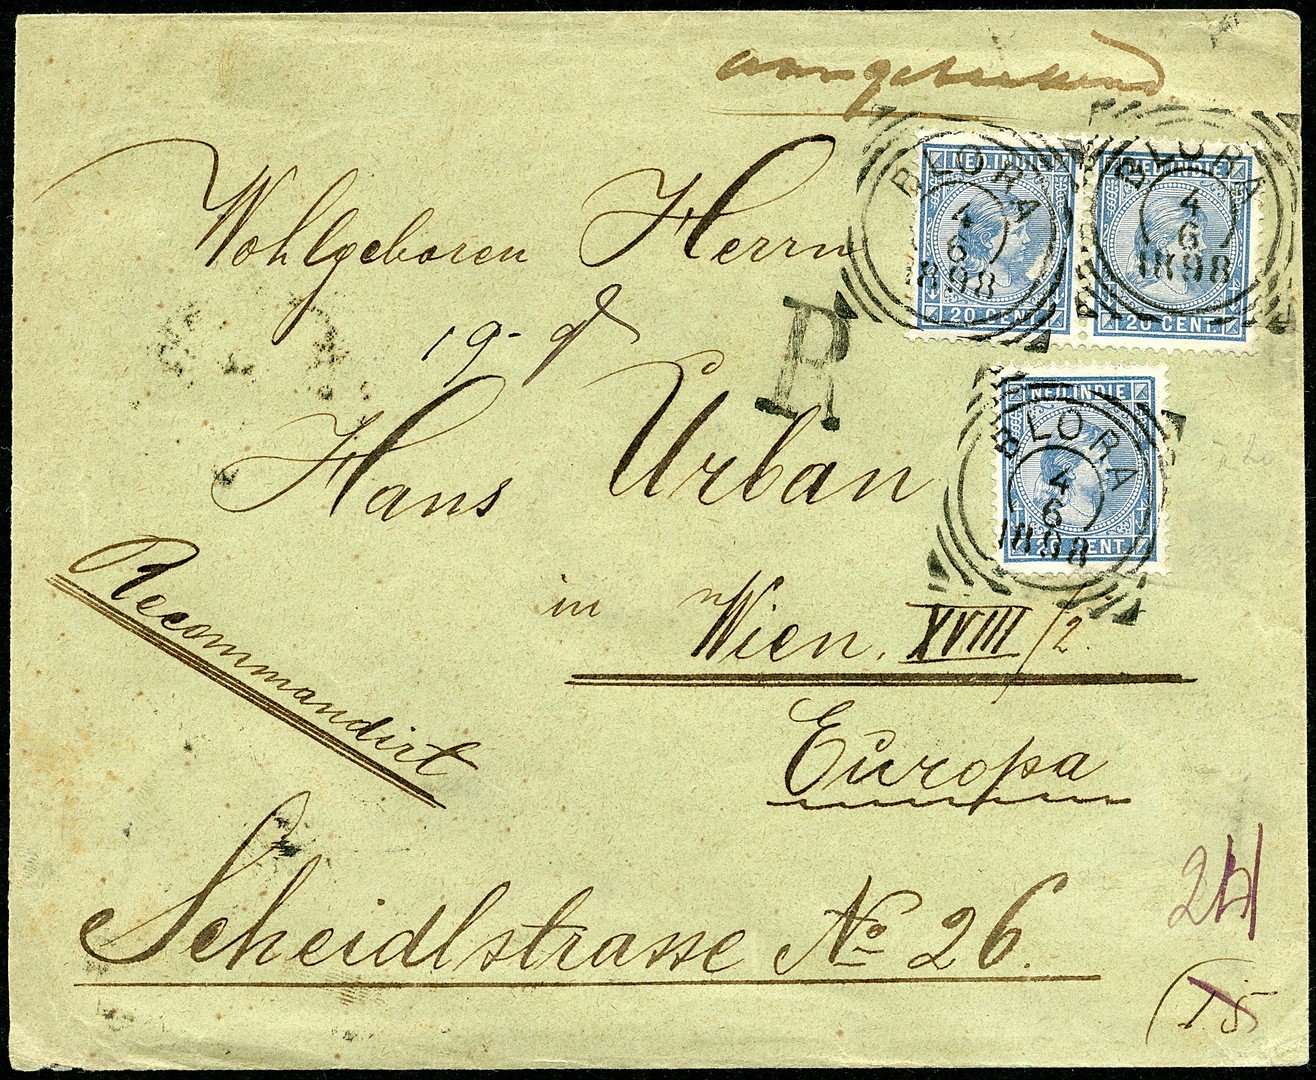 aangetekend
Wohlgeboren Herrn
19-
R
Hans Urban
in Wien, XVIII/2.
Europa
Recommandirt
Scheidlstrasse No 26.
NED. INDIE
20 CENT
BLORA
4
6
1898
NED. INDIE
20 CENT
BLORA
4
6
1898
NED. INDIE
20 CENT
BLORA
4
6
1898